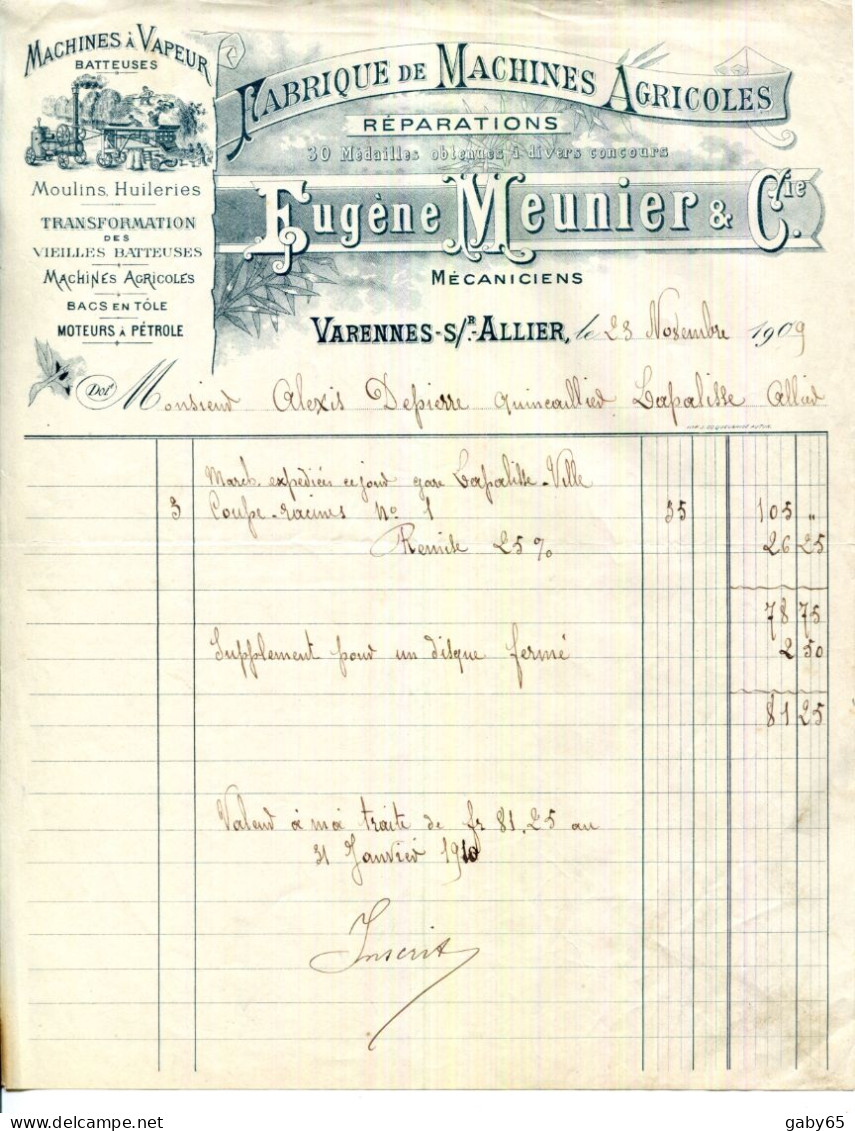 MACHINES À VAPEUR
BATTEUSES
Moulins, Huileries
TRANSFORMATION
DES
VIEILLES BATTEUSES
MACHINES AGRICOLES
BACS EN TÔLE
MOTEURS À PÉTROLE
FABRIQUE DE MACHINES AGRICOLES
RÉPARATIONS
30 Médailles obtenues à divers concours
Eugène Meunier & Cie
MÉCANICIENS
VARENNES-S/R-ALLIER, le 23 Novembre 1909
Doit Monsieur Alexis Depierre quincaillier Lapalisse Allier
March. expédiées ce jour gare Lapalisse-Ville
3 Coupe-racines No 1 35 105 "
Remise 25% 26 25
78 75
Supplément pour un disque fermé 2 50
81 25
Valeur à ma traite de fr 81,25 au
31 Janvier 1910
Inscrit
gaby65